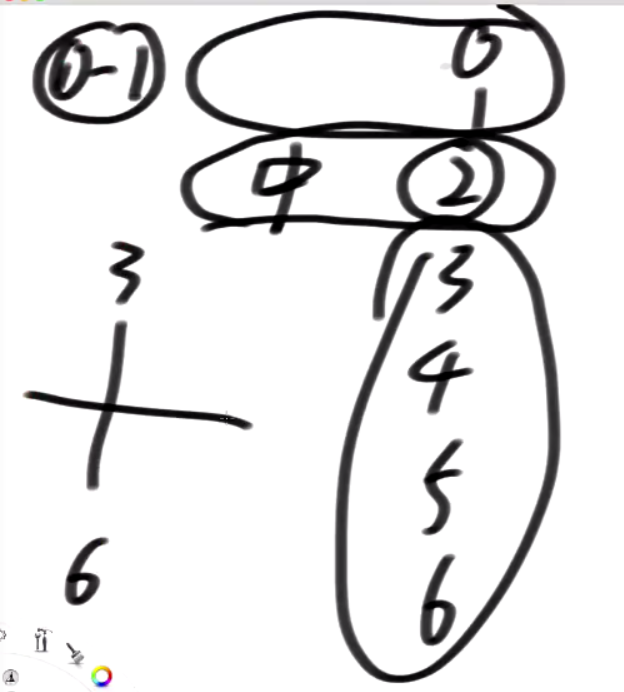 0-1 0
1
中 2
3 3
4
5
6 6